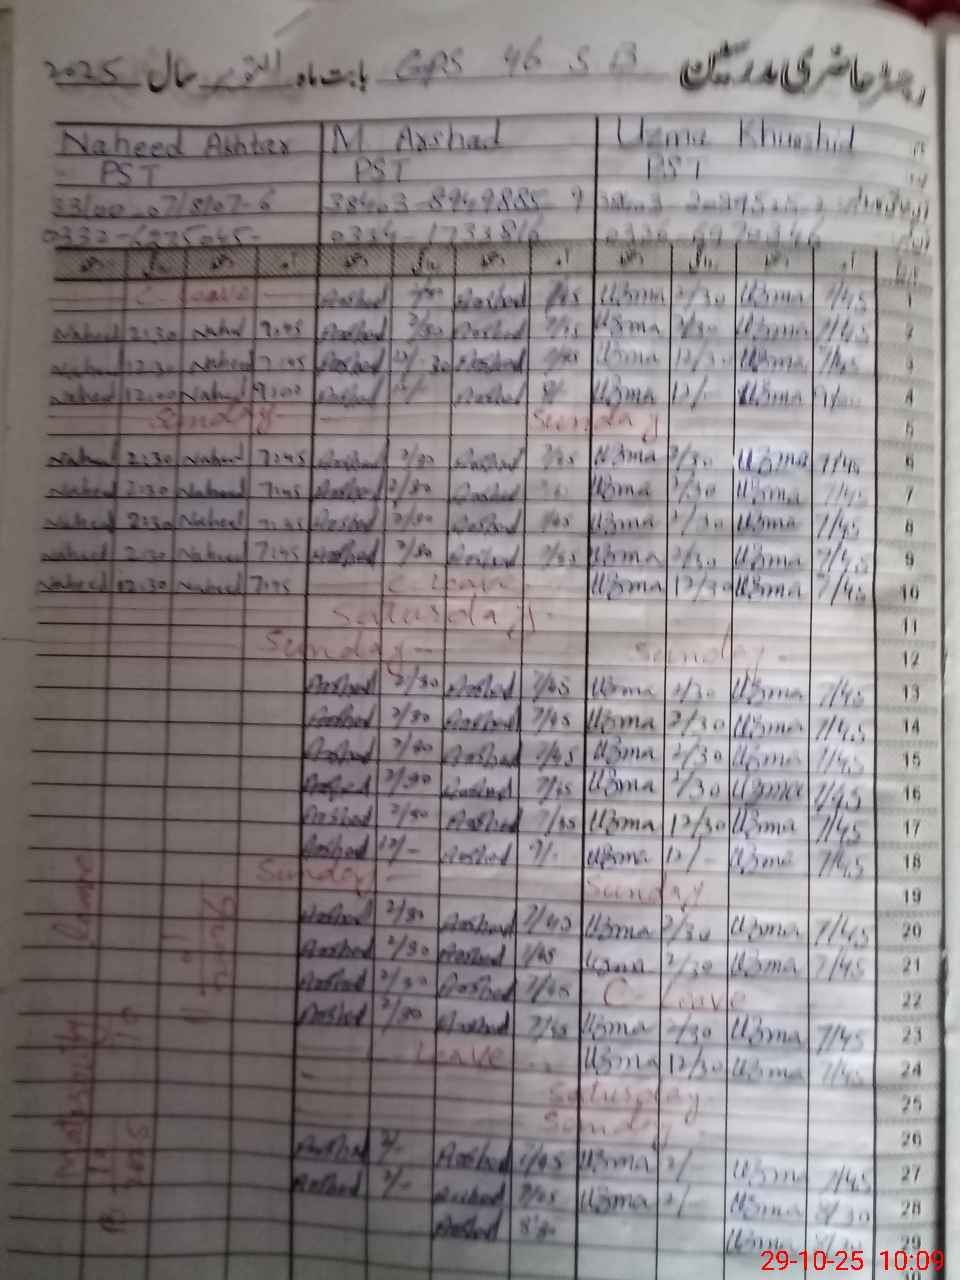 رجسٹر حاضری مدرسین GPS 46 SB بابت ماہ اکتوبر سال 2025
Naheed Akhtar M Arshad Uzma Khurshid
PST PST PST
38403-8949885-9
0334-1733816
C-Leave Arshad Arshad 7/45 Uzma 2/30 Uzma 7/45 1
Naheed 2:30 Nahed Arshad 2/30 Arshad 7/45 Uzma 2/30 Uzma 7/45 2
Naheed 12.30 Naheed 7:45 Arshad 12/-30 Arshad 7/45 Uzma 12/30 Uzma 7/45 3
Naheed 12:00 Naheed 9:00 Arshad 12/- Arshad 8/- Uzma 12/- Uzma 4
Sunday Sunday 5
Naheed 2:30 Naheed 7:45 Arshad 2/30 Arshad 7/45 Uzma 2/30 Uzma 7/45 6
Naheed 2:30 Naheed 7:45 Arshad 2/30 Arshad Uzma 2/30 Uzma 7/45 7
Naheed 2:30 Naheed 7:45 Arshad 2/30 Arshad 7/45 Uzma 2/30 Uzma 7/45 8
Naheed 2:30 Naheed 7:45 Arshad 2/30 Arshad 7/45 Uzma 2/30 Uzma 7/45 9
Naheed 12.30 Naheed 7:45 C-Leave Uzma 12/30 Uzma 7/45 10
Saturday 11
Sunday Sunday 12
Arshad 2/30 Arshad 7/45 Uzma 2/30 Uzma 7/45 13
Arshad 2/30 Arshad 7/45 Uzma 2/30 Uzma 7/45 14
Arshad 2/30 Arshad 7/45 Uzma 2/30 Uzma 7/45 15
Arshad 2/30 Arshad 7/45 Uzma 2/30 Uzma 7/45 16
Arshad Arshad 7/45 Uzma 12/30 Uzma 7/45 17
Arshad 12/- Arshad Uzma 12/- Uzma 7/45 18
Sunday Sunday 19
Arshad 2/30 Arshad 7/40 Uzma 2/30 Uzma 7/45 20
Arshad 2/30 Arshad 7/45 Uzma 2/30 Uzma 7/45 21
Arshad 2/30 Arshad 7/45 C-Leave 22
Arshad 2/30 Arshad 7/45 Uzma 2/30 Uzma 7/45 23
Leave Uzma 12/30 Uzma 7/45 24
Saturday 25
Sunday 26
Arshad 2/- Arshad 7/45 Uzma 2/- Uzma 7/45 27
Arshad 2/- Arshad 7/45 Uzma 2/- Uzma 8/30 28
Arshad 8:30 Uzma 8/30 29
Maternity Leave
29-10-25 10:09